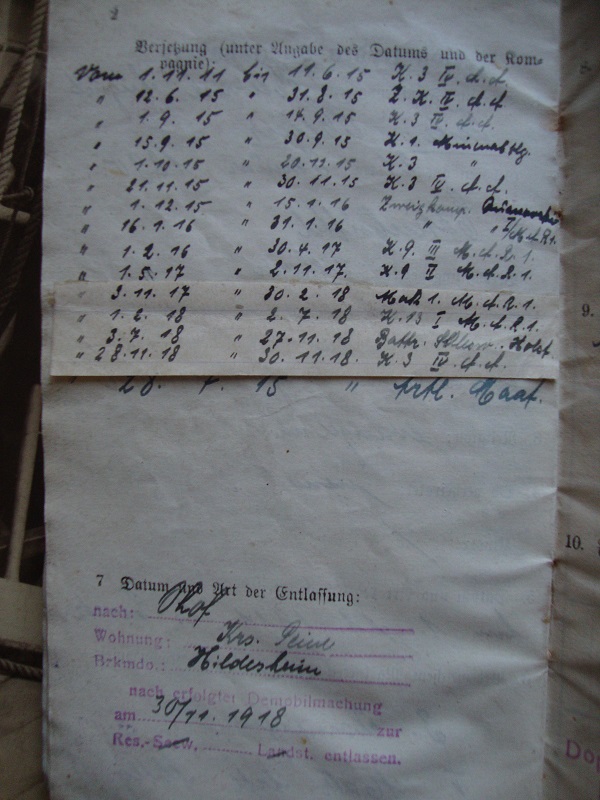 2
Versetzung (unter Angabe des Datums und der Kom-
pagnie):
Vom 1.11.11 bis 11.6.15 K.3 IV. A.A.
" 12.6.15 " 31.8.15 2.K. IV. A.A.
" 1.9.15 " 14.9.15 K.3 IV. A.A.
" 15.9.15 " 30.9.15 K.1.
" 1.10.15 " 20.11.15 K.3 "
" 21.11.15 " 30.11.15 K.3 IV. A.A.
" 1.12.15 " 15.1.16 Zweigkomp.
" 16.1.16 " 31.1.16 " "
" 1.2.16 " 30.4.17 K.9. III M.A.R.1.
" 1.5.17 " 2.11.17. K.9 II M.A.R.1.
" 3.11.17 " 30.2.18 1. M.A.R.1.
" 1.2.18 " 2.7.18 K.13 I M.A.R.1.
" 3.7.18 " 27.11.18 Battr. Holst
" 28.11.18 " 30.11.18. K.3 IV. A.A.
" 20. 4. 15 " Artl. Maat.
7 Datum und Art der Entlassung:
nach:
Wohnung: Krs. Peine
Brkmdo.: Hildesheim
nach erfolgter Demobilmachung
am 30/11.1918 zur
Res.-Seew. Landst. entlassen.
9.
10.